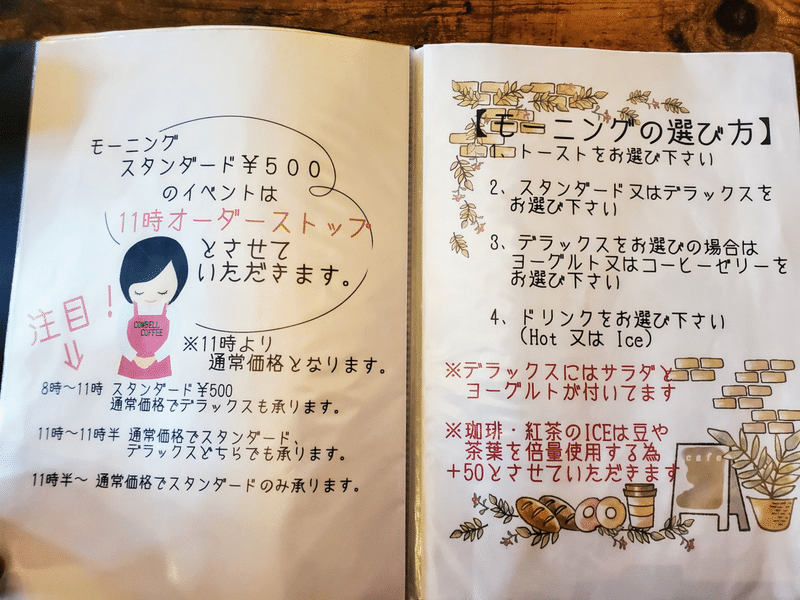 モーニング
スタンダード¥500
のイベントは
11時オーダーストップ
とさせて
いただきます。
注目!
COWBELL
COFFEE
※11時より
通常価格となります。
8時〜11時 スタンダード¥500
通常価格でデラックスも承ります。
11時〜11時半 通常価格でスタンダード、
デラックスどちらでも承ります。
11時半〜 通常価格でスタンダードのみ承ります。
【モーニングの選び方】
1、トーストをお選び下さい
2、スタンダード又はデラックスを
お選び下さい
3、デラックスをお選びの場合は
ヨーグルト又はコーヒーゼリーを
お選び下さい
4、ドリンクをお選び下さい
(Hot 又は Ice)
※デラックスにはサラダと
ヨーグルトが付いてます
※珈琲・紅茶のICEは豆や
茶葉を倍量使用する為
+50とさせていただきます
cafe